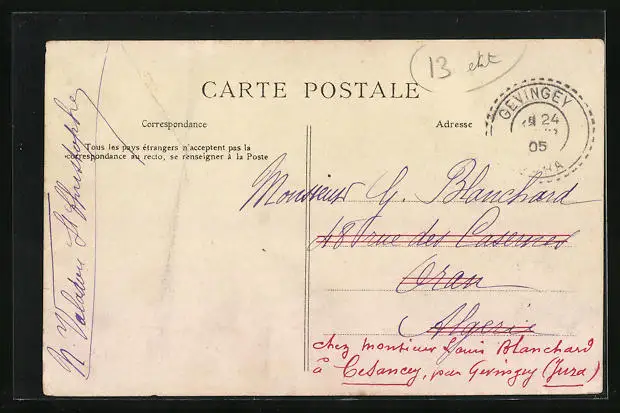 13
CARTE POSTALE
Correspondance
Tous les pays étrangers n'acceptent pas la
correspondance au recto, se renseigner à la Poste
Adresse
GEVINGEY
24
05
Monsieur G. Blanchard
48 rue des Casernes
Oran
Algérie
chez Monsieur Louis Blanchard
à Cesancey, par Gevingey (Jura)
St Christophe